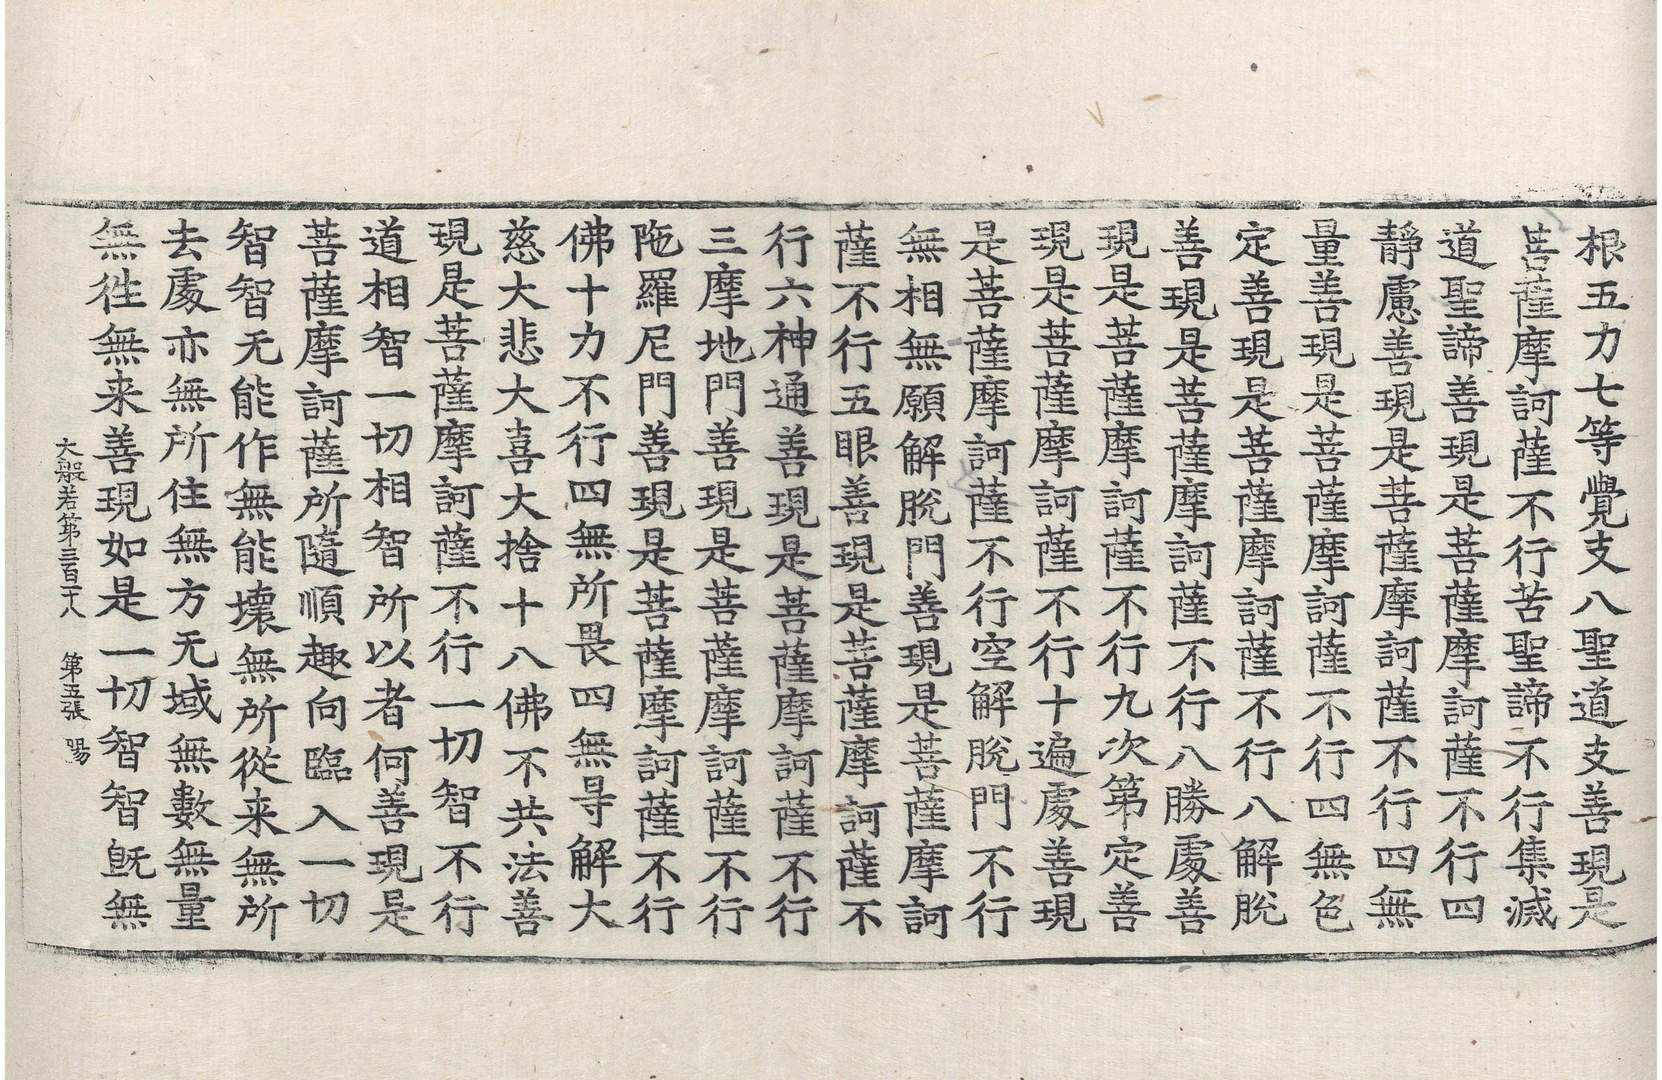 根五力七等覺支八聖道支善現是
菩薩摩訶薩不行苦聖諦不行集滅
道聖諦善現是菩薩摩訶薩不行四
靜慮善現是菩薩摩訶薩不行四無
量善現是菩薩摩訶薩不行四無色
定善現是菩薩摩訶薩不行八解脫
善現是菩薩摩訶薩不行八勝處善
現是菩薩摩訶薩不行九次第定善
現是菩薩摩訶薩不行十遍處善現
是菩薩摩訶薩不行空解脫門不行
無相無願解脫門善現是菩薩摩訶
薩不行五眼善現是菩薩摩訶薩不
行六神通善現是菩薩摩訶薩不行
三摩地門善現是菩薩摩訶薩不行
陁羅尼門善現是菩薩摩訶薩不行
佛十力不行四無所畏四無㝵解大
慈大悲大喜大捨十八佛不共法善
現是菩薩摩訶薩不行一切智不行
道相智一切相智所以者何善現是
菩薩摩訶薩所隨順趣向臨入一切
智智无能作無能壞無所從来無所
去處亦無所住無方无域無數無量
無徃無来善現如是一切智智旣無
大般若第三百二八 第五張 陽